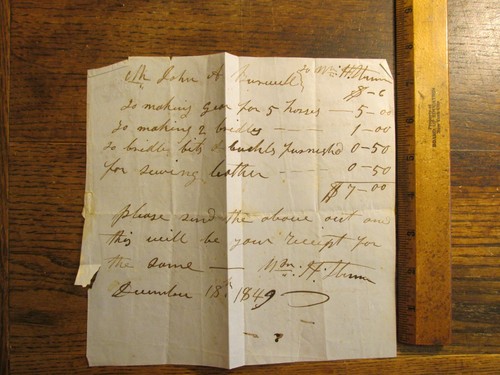 Mr John A. Burwell,
To Wm H Thrun
$ - c
To making gear for 5 horses — 5-00
To making 2 bridles — — 1-00
to bridle bits & buckles furnished 0-50
for sewing leather — — 0-50
$ 7-00
please send the above out and
this will be your receipt for
the same — Wm: H:
December 18th 1849